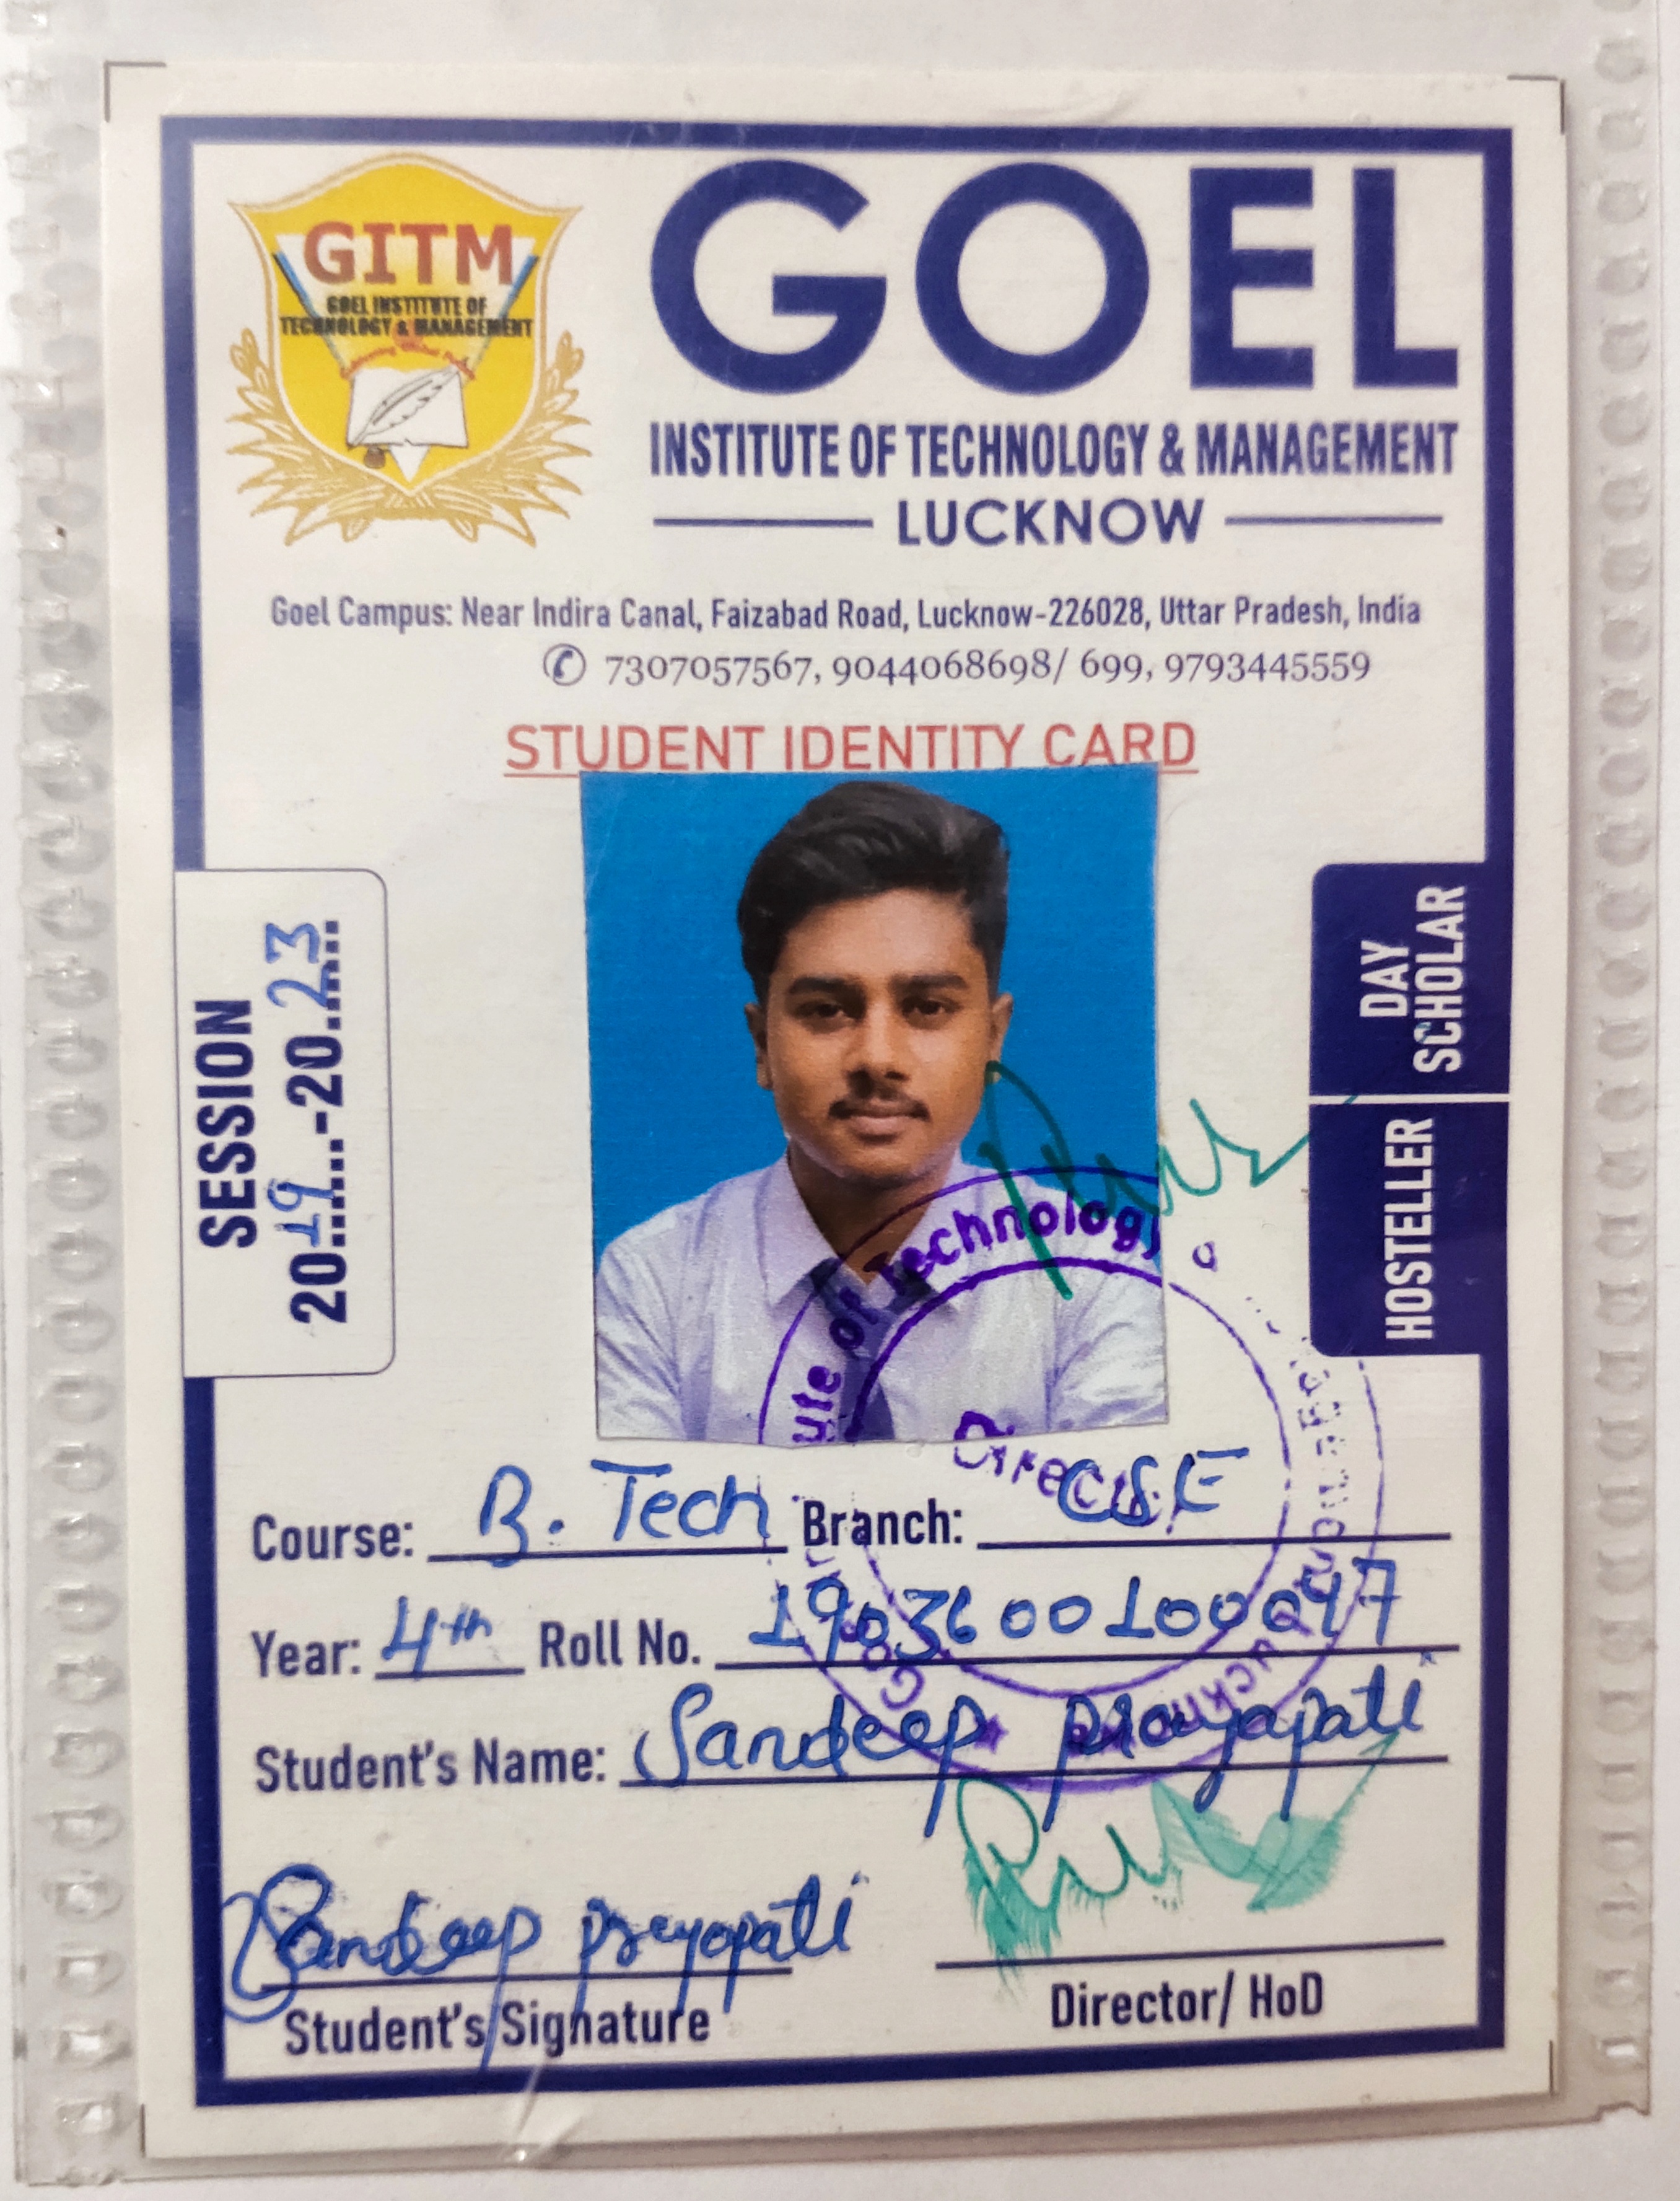 GITM
GOEL INSTITUTE OF
TECHNOLOGY & MANAGEMENT
GOEL
INSTITUTE OF TECHNOLOGY & MANAGEMENT
LUCKNOW
Goel Campus: Near Indira Canal, Faizabad Road, Lucknow-226028, Uttar Pradesh, India
7307057567, 9044068698/ 699, 9793445559
STUDENT IDENTITY CARD
SESSION
2019-2023
DAY
SCHOLAR
HOSTELLER
of Technology
Director
Course: B. Tech Branch: CSE
Year: 4th Roll No. 1903600100097
Student's Name: Sandeep prajapati
Sandeep prajapati
Student's Signature
Director/ HoD